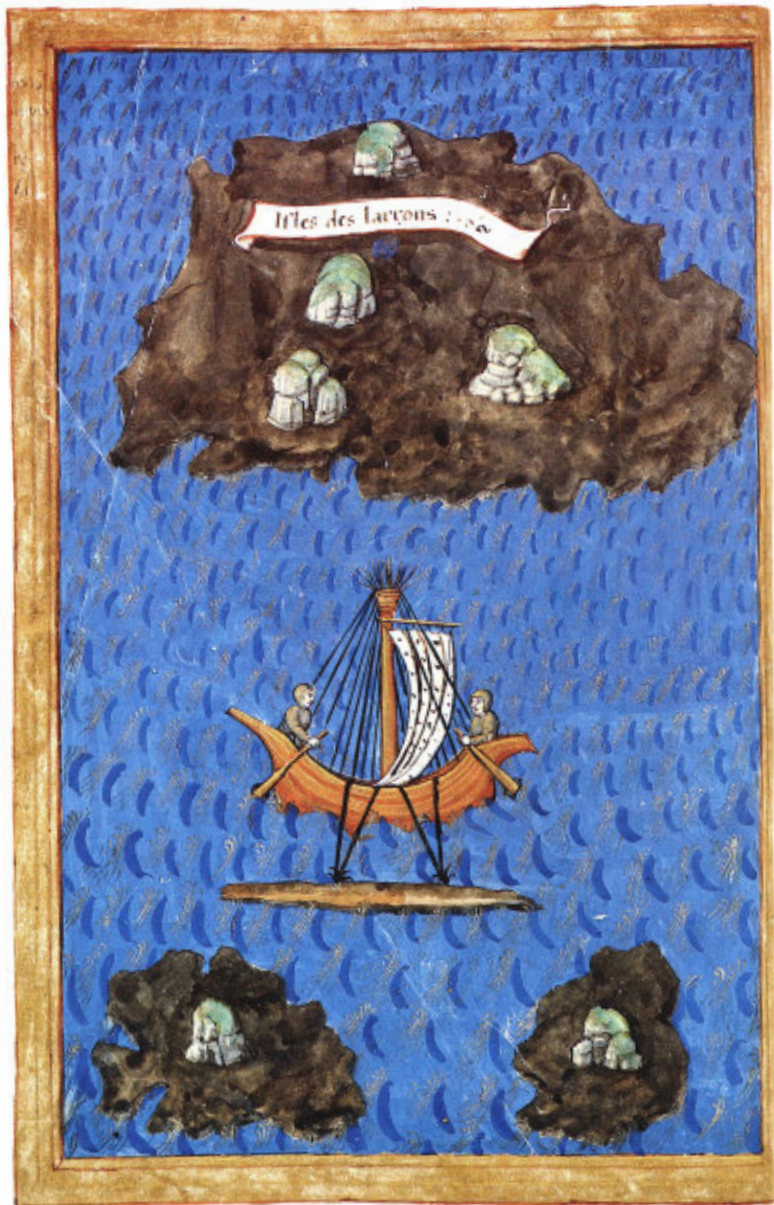 Isles des larrons :